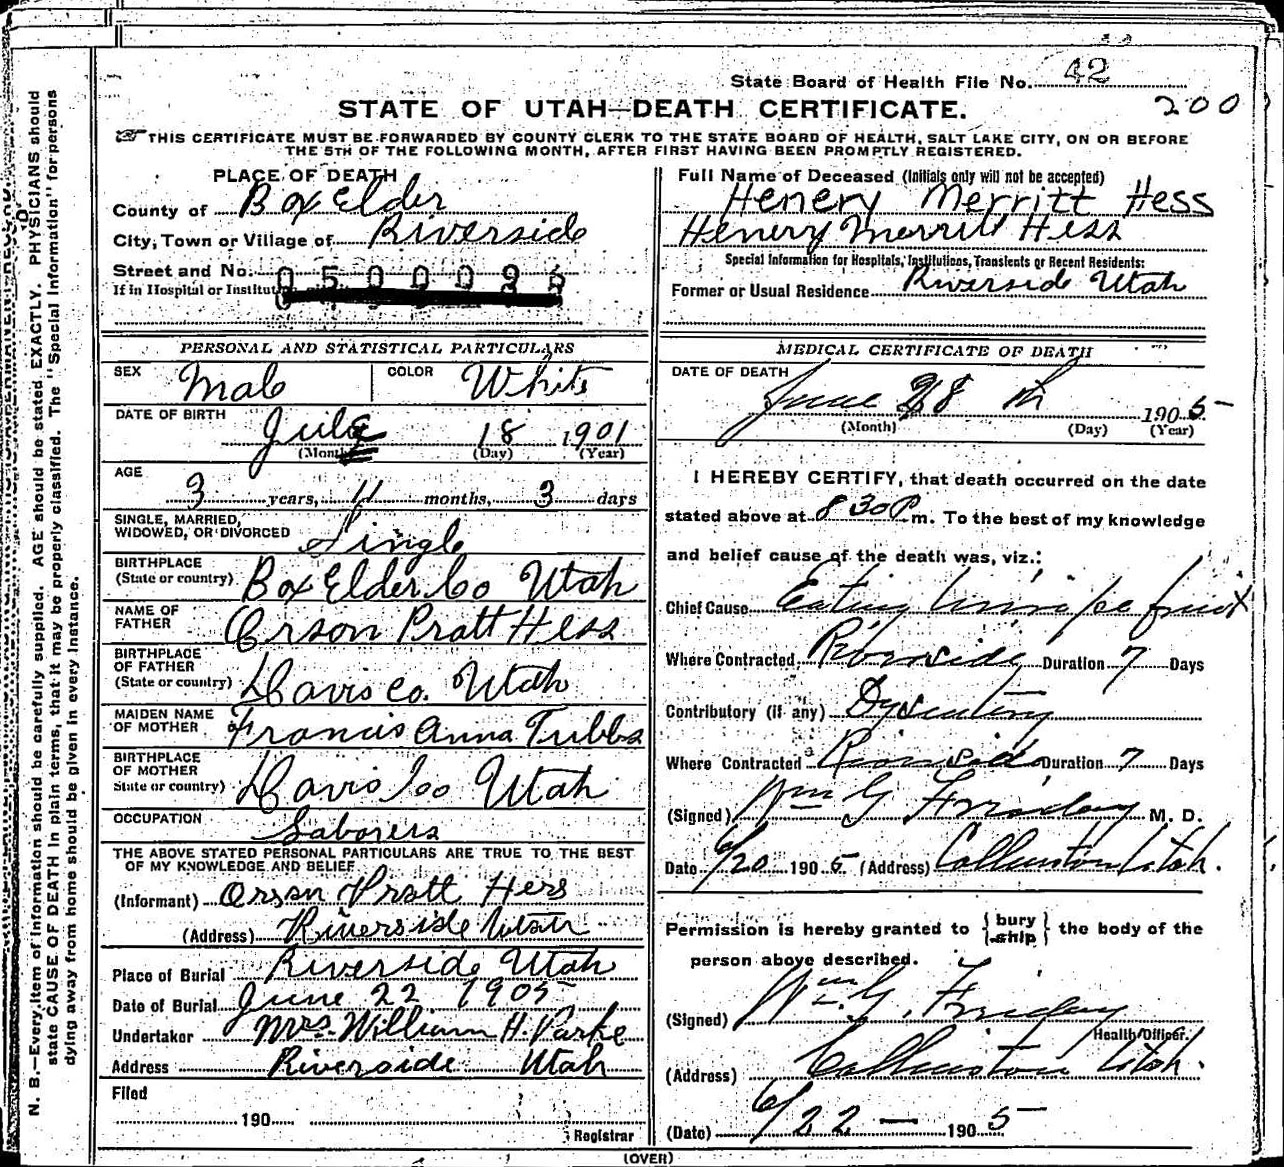 State Board of Health File No. 42
200
STATE OF UTAH—DEATH CERTIFICATE.
THIS CERTIFICATE MUST BE FORWARDED BY COUNTY CLERK TO THE STATE BOARD OF HEALTH, SALT LAKE CITY, ON OR BEFORE
THE 5TH OF THE FOLLOWING MONTH, AFTER FIRST HAVING BEEN PROMPTLY REGISTERED.
PLACE OF DEATH
County of Box Elder
City, Town or Village of Riverside
Street and No.
If in Hospital or Institut
Full Name of Deceased (Initials only will not be accepted)
Henery Merritt Hess
Henery Merrill Hess
Special Information for Hospitals, Institutions, Transients or Recent Residents:
Former or Usual Residence Riverside Utah
PERSONAL AND STATISTICAL PARTICULARS
SEX Male COLOR White
DATE OF BIRTH
July 18 1901
(Month) (Day) (Year)
AGE
3 years, 11 months, 3 days
SINGLE, MARRIED,
WIDOWED, OR DIVORCED Single
BIRTHPLACE
(State or country) Box Elder Co Utah
NAME OF
FATHER Orson Pratt Hess
BIRTHPLACE
OF FATHER
(State or country) Davis Co. Utah
MAIDEN NAME
OF MOTHER Francis Anna Tubbs
BIRTHPLACE
OF MOTHER
State or country) Davis Co Utah
OCCUPATION
Laborers
THE ABOVE STATED PERSONAL PARTICULARS ARE TRUE TO THE BEST
OF MY KNOWLEDGE AND BELIEF
(Informant) Orson Pratt Hess
(Address) Riverside Utah
Place of Burial Riverside Utah
Date of Burial June 22 1905
Undertaker Mrs. William H. Parke
Address Riverside Utah
Filed
190
Registrar
MEDICAL CERTIFICATE OF DEATH
DATE OF DEATH
June th 1905
(Month) (Day) (Year)
I HEREBY CERTIFY, that death occurred on the date
stated above at 8 30 P.m. To the best of my knowledge
and belief cause of the death was, viz.:
Chief Cause Eating unripe fruit
Where Contracted Riverside Duration 7 Days
Contributory (if any) Dysentery
Where Contracted Riverside Duration 7 Days
(Signed) Wm G M. D.
Date 6/20 1905 (Address) Collinston Utah.
Permission is hereby granted to {bury
ship} the body of the
person above described.
(Signed) Wm G.
Health Officer.
(Address) Collinston Utah.
(Date) 6/22 — 1905
(OVER)
N. B.—Every item of information should be carefully supplied. AGE should be stated EXACTLY. PHYSICIANS should
state CAUSE OF DEATH in plain terms, that it may be properly classified. The "Special Information" for persons
dying away from home should be given in every instance.